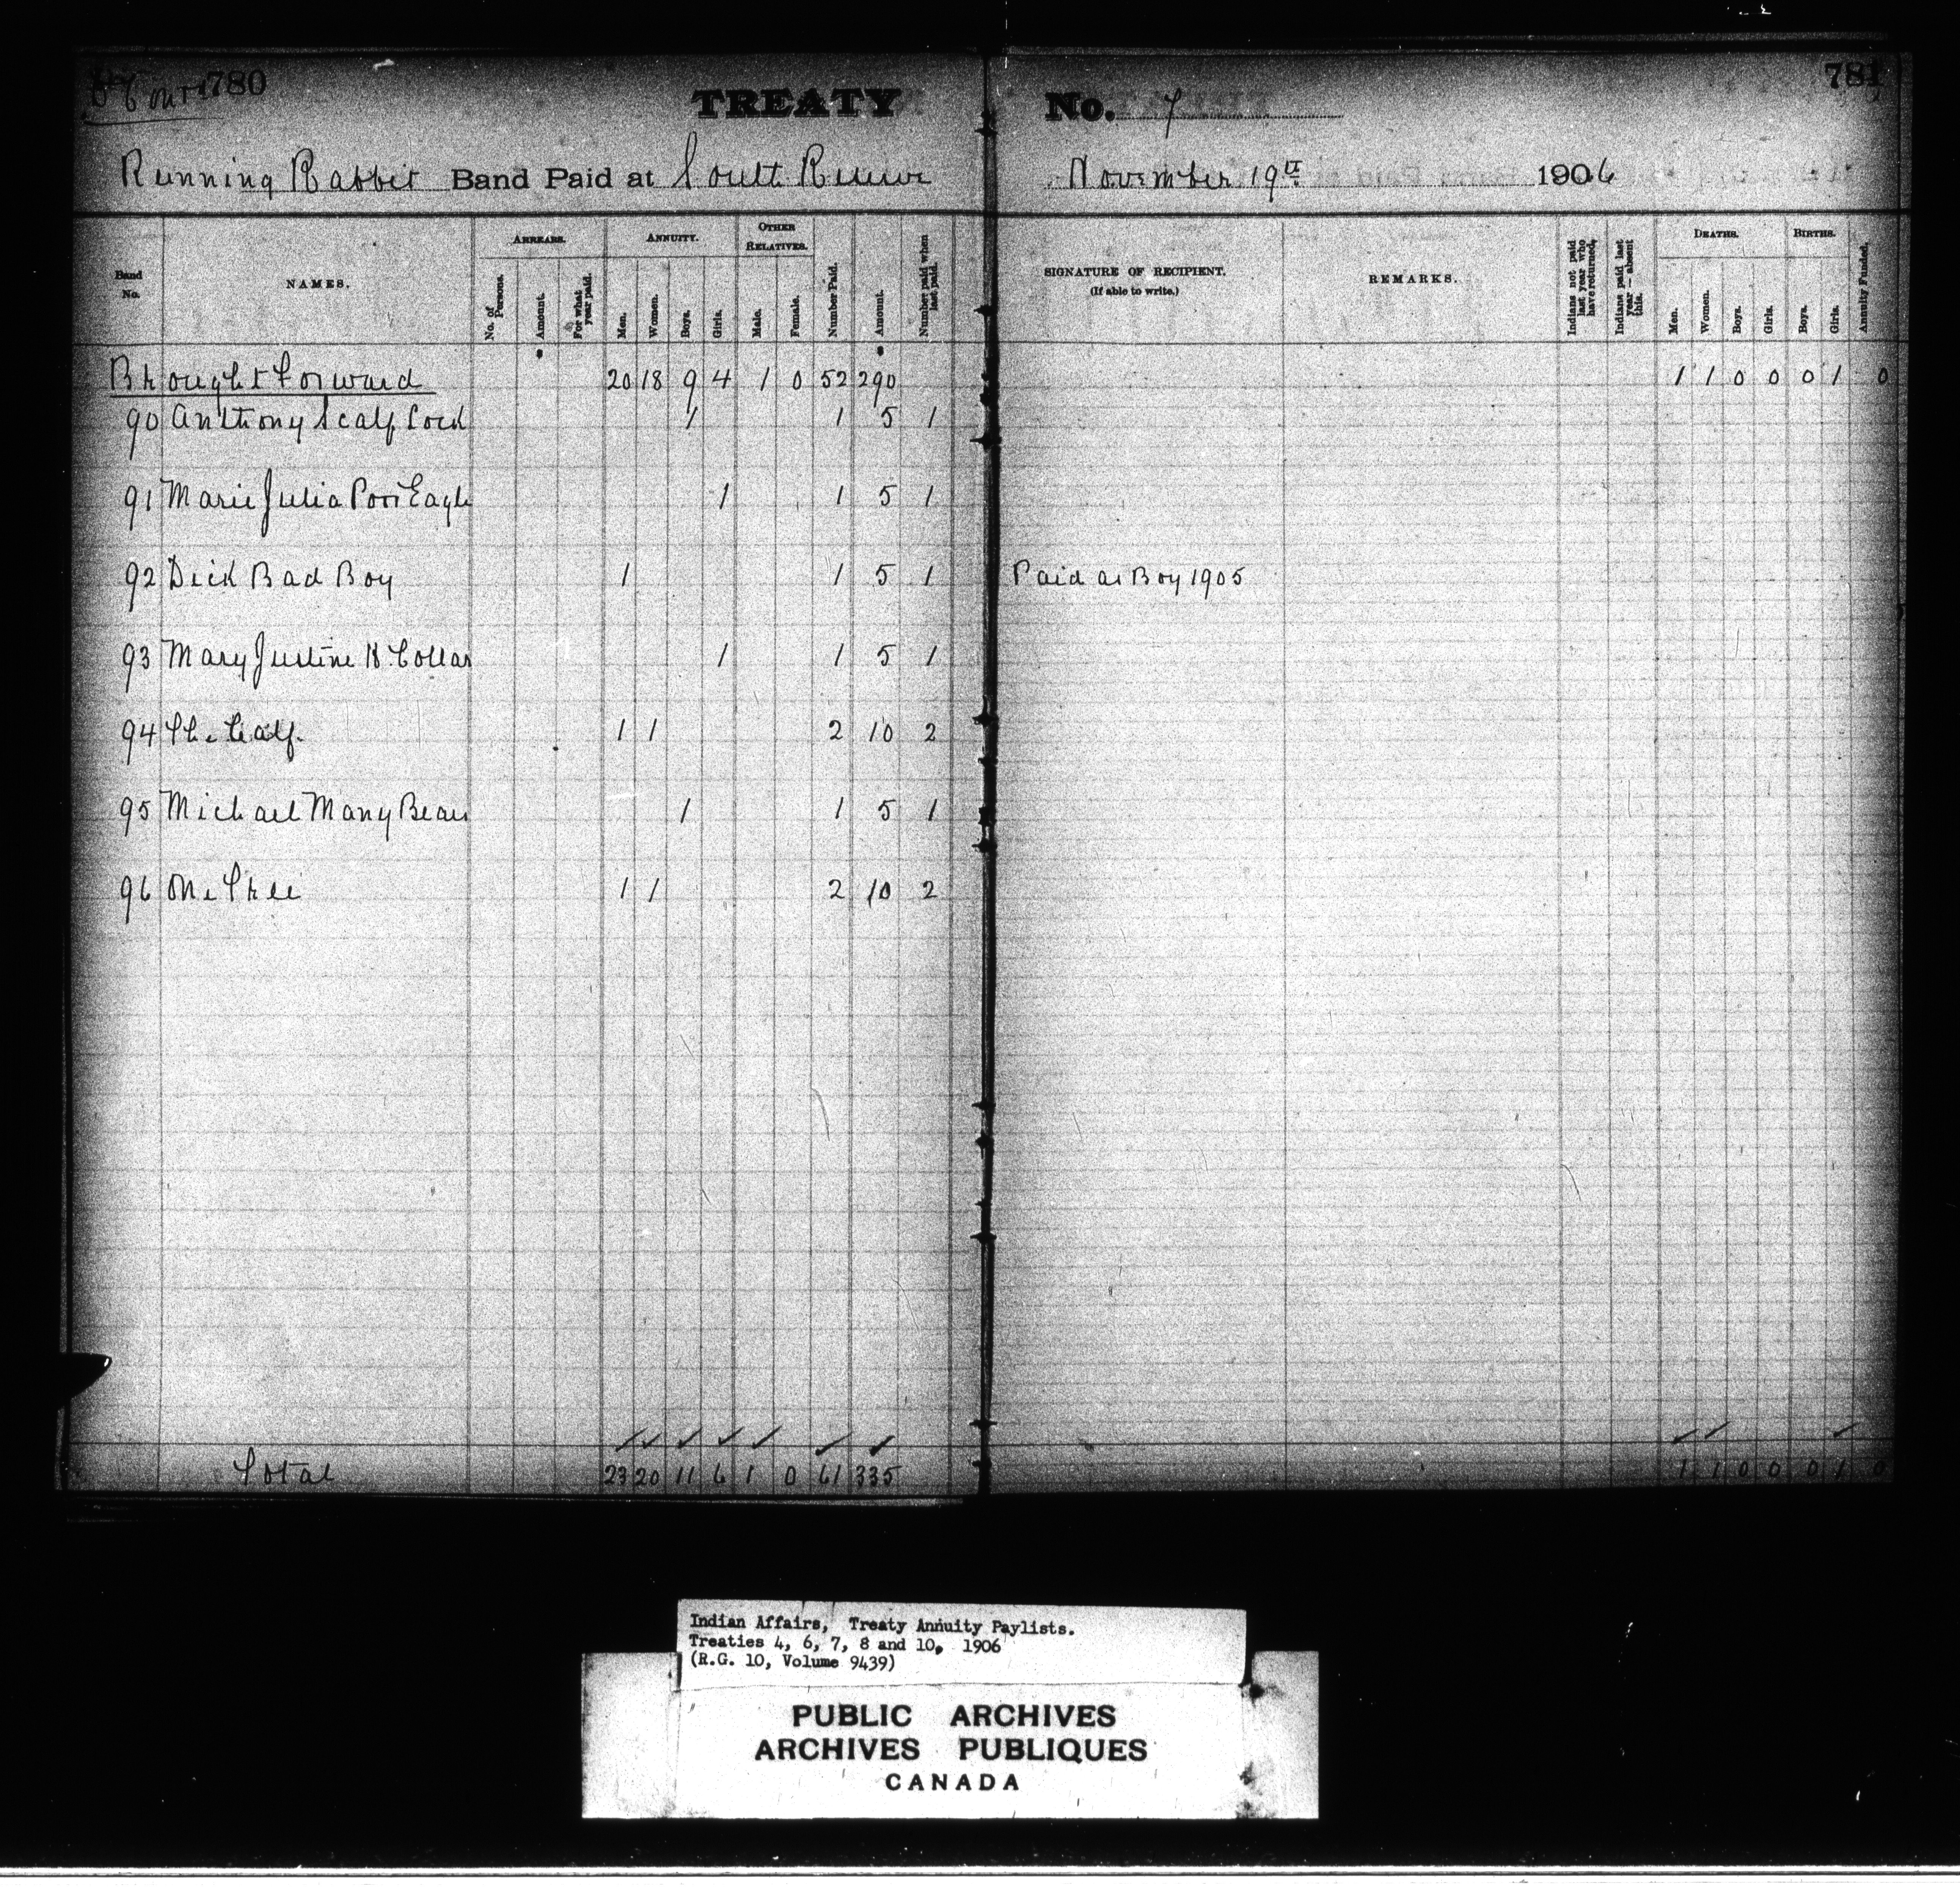 780
TREATY No. 7
781
Running Rabbit Band Paid at South Reserve November 19th 1906
Band No.
NAMES.
ARREARS.
No. of Persons.
Amount.
For what year paid.
ANNUITY.
Men.
Women.
Boys.
Girls.
OTHER RELATIVES.
Male.
Female.
Number Paid.
Amount.
Number paid when last paid.
SIGNATURE OF RECIPIENT.
(If able to write.)
REMARKS.
Indians not paid last year who have returned.
Indians paid last year — absent this.
DEATHS.
Men.
Women.
Boys.
Girls.
BIRTHS.
Boys.
Girls.
Annuity Funded.
Brought Forward 20 18 9 4 1 0 52 290 1 1 0 0 0 1 0
90 Anthony Scalp Lock 1 1 5 1
91 Marie Julia Poor Eagle 1 1 5 1
92 Dick Bad Boy 1 1 5 1 Paid as Boy 1905
93 Mary Justine H. Collar 1 1 5 1
94 The Calf. 1 1 2 10 2
95 Michael Many Bears 1 1 5 1
96 One Tree 1 1 2 10 2
Total 23 20 11 6 1 0 61 335 1 1 0 0 0 1 0
Indian Affairs, Treaty Annuity Paylists.
Treaties 4, 6, 7, 8 and 10, 1906
(R.G. 10, Volume 9439)
PUBLIC ARCHIVES
ARCHIVES PUBLIQUES
CANADA